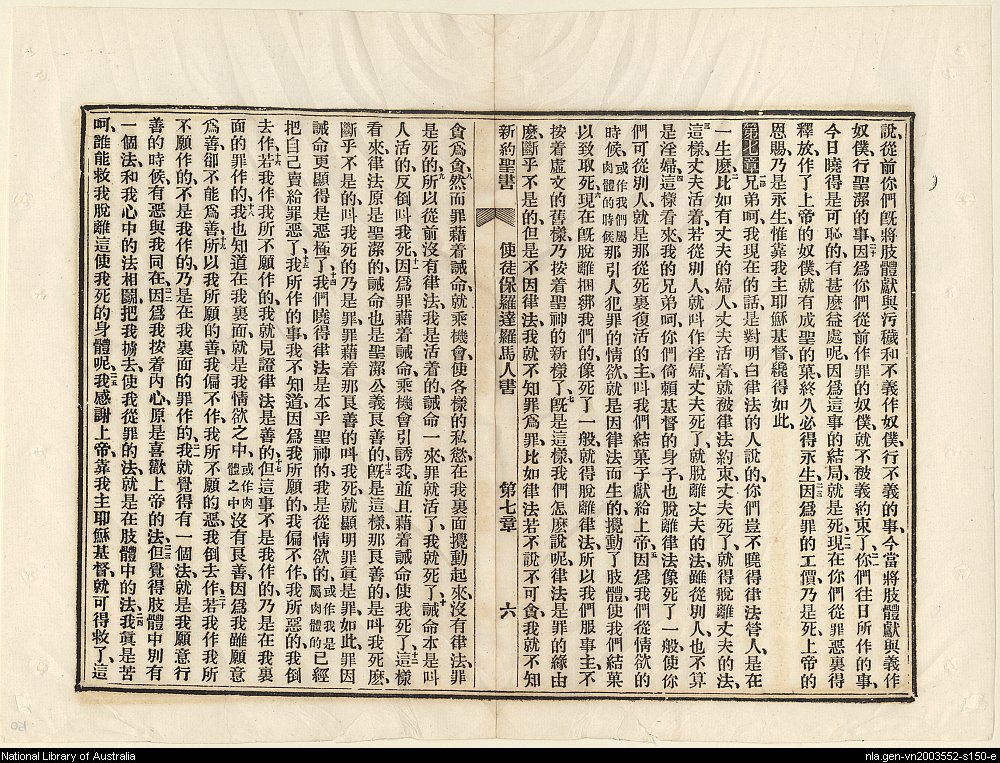 說、從前你們旣將肢體獻與污穢和不義作奴僕、行不義的事、今當將肢體獻與義作
奴僕、行聖潔的事、因爲你們從前作罪的奴僕、就不被義約束了、你們往日所作的事、
今日曉得是可恥的、有甚麼益處呢、因爲這事的結局就是死、現在你們從罪惡裏得
釋放、作了上帝的奴僕、就有成聖的菓、終久必得永生、因爲罪的工價乃是死、上帝的
恩賜、乃是永生、惟靠我主耶穌基督、纔得如此、
第七章 兄弟呵、我現在的話、是對明白律法的人說的、你們豈不曉得律法管人、是在
一生麼、比如有丈夫的婦人、丈夫活着、就被律法約束、丈夫死了、就得脫離丈夫的法、
這樣、丈夫活着、若從別人、就叫作淫婦、丈夫死了、就脫離丈夫的法、雖從別人、也不算
是淫婦、這樣看來、我的兄弟呵、你們倚賴基督的身子、也脫離律法、像死了一般、使你
們可從別人、就是那從死裏復活的主、叫我們結菓子獻給上帝、因爲我們從情欲的
時候、或作我們屬肉體的時候那引人犯罪的情欲、就是因律法而生的、攪動了肢體、使我們結菓
以致取死、現在旣脫離捆綁我們的、像死了一般、就得脫離律法、所以我們服事主、不
按着虛文的舊樣、乃按着聖神的新樣、旣是這樣、我們怎麼說呢、律法是罪的緣由
麼、斷乎不是的、但是不因律法、我就不知罪爲罪、比如律法若不說、不可貪、我就不知
新約聖書 使徒保羅達羅馬人書 第七章 六
貪爲貪、然而罪藉着誡命、就乘機會、使各樣的私慾在我裏面攪動起來、沒有律法、罪
是死的、所以從前沒有律法、我是活着的、誡命一來、罪就活了、我就死了、誡命本是叫
人活的、反倒叫我死、因爲罪藉着誡命、乘機會引誘我、並且藉着誡命使我死了、這樣
看來、律法原是聖潔的、誡命也是聖潔公義良善的、旣是這樣、那良善的是叫我死麼、
斷乎不是的、叫我死的乃是罪、罪藉着那良善的叫我死、就顯明罪眞是罪、如此、罪因
誡命更顯得是惡極了、我們曉得律法是本乎聖神的、我是從情欲的、或作我是屬肉體的已經
把自己賣給罪惡了、我所作的事我不知道、因爲我所願的我偏不作、我所惡的我倒
去作、若我作我所不願作的、我就見證律法是善的、但這事不是我作的、乃是在我裏
面的罪作的、我也知道在我裏面、就是我情欲之中、或作肉體之中沒有良善、因爲我雖願意
爲善、卻不能爲善、所以我所願的善、我偏不作、我所不願的惡、我倒去作、若我作我所
不願作的、不是我作的、乃是在我裏面的罪作的、我就覺得有一個法、就是我願意行
善的時候、有惡與我同在、因爲我按着內心、原是喜歡上帝的法、但覺得肢體中別有
一個法、和我心中的法相鬬、把我擄去、使我從罪的法、就是在肢體中的法、我眞是苦
呵、誰能救我脫離這使我死的身體呢、我感謝上帝、靠我主耶穌基督就可得救了、這
National Library of Australia
nla.gen-vn2003552-s150-e